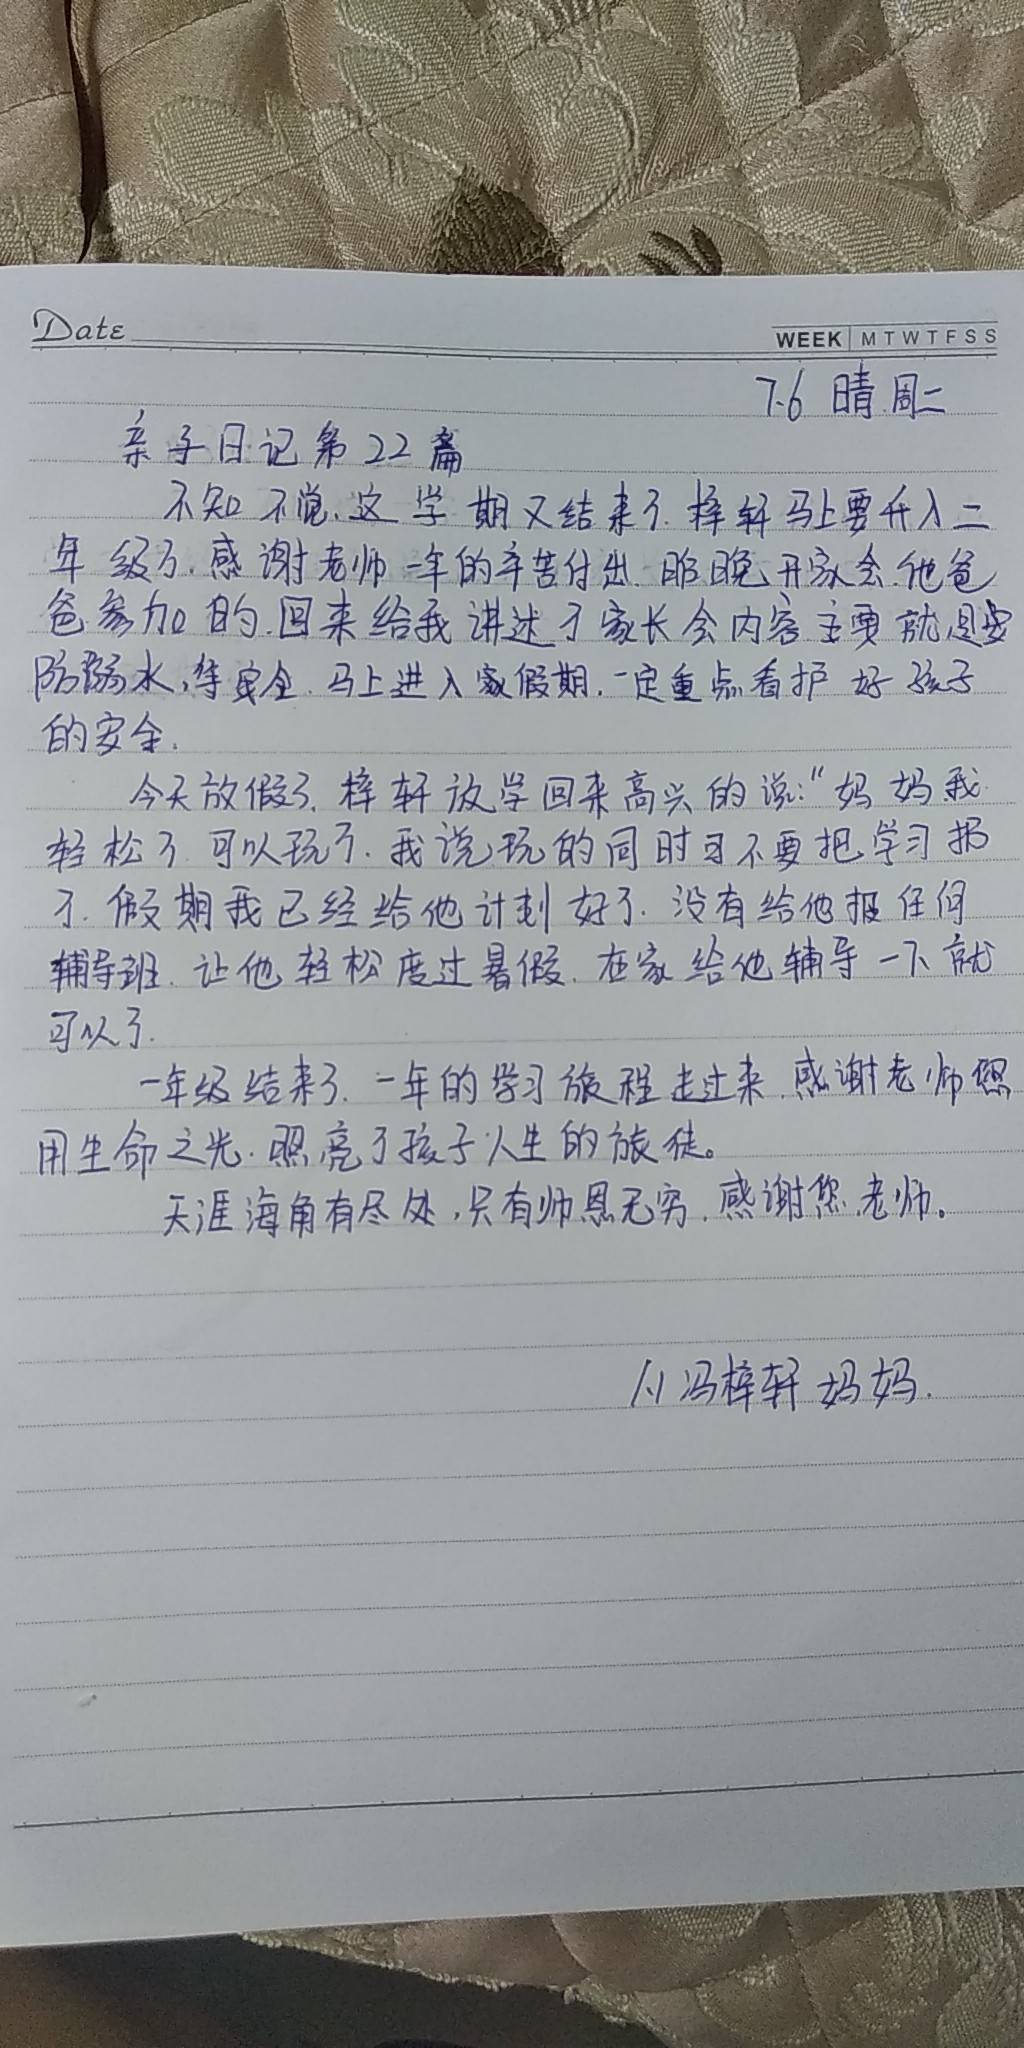 Date
WEEK M T W T F S S
7.6 晴.周二
亲子日记第22篇
不知不觉.这学期又结束了.梓轩马上要升入二
年级了.感谢老师一年的辛苦付出.昨晚开家会.他爸
爸参加的.回来给我讲述了家长会内容主要就是要
防溺水,等安全.马上进入家假期.一定重点看护好孩子
的安全.
今天放假了.梓轩放学回来高兴的说:"妈妈我
轻松了.可以玩了.我说玩的同时可不要把学习扔
了.假期我已经给他计划好了.没有给他报任何
辅导班.让他轻松度过暑假.在家给他辅导一下就
可以了.
一年级结束了.一年的学习旅程走过来.感谢老师您
用生命之光.照亮了孩子人生的旅徒。
天涯海角有尽处,只有师恩无穷.感谢您.老师。
冯梓轩妈妈.